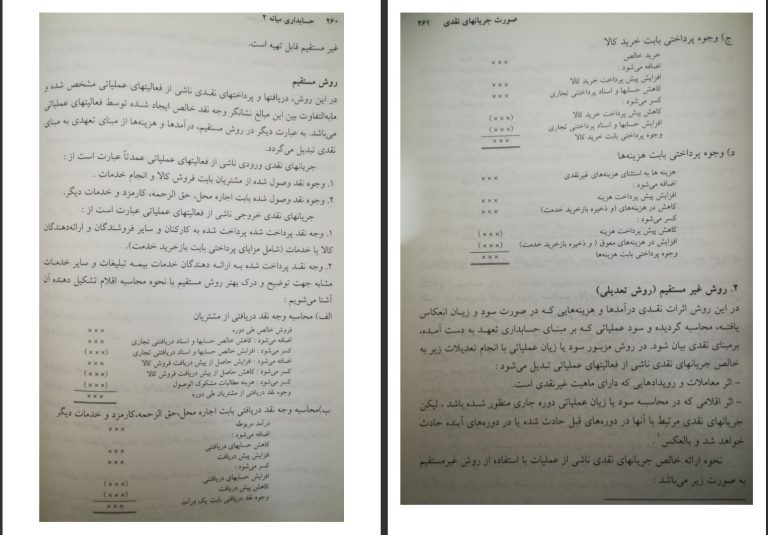 ۲۶۰ حسابداری میانه ۲
غیر مستقیم قابل تهیه است.
روش مستقیم
در این روش، دریافتها و پرداختهای نقدی ناشی از فعالیتهای عملیاتی مشخص شده و
مابه‌التفاوت بین این مبالغ نشانگر وجه نقد خالص ایجاد شده توسط فعالیتهای عملیاتی
می‌باشد. به عبارت دیگر در روش مستقیم، درآمدها و هزینه‌ها از مبنای تعهدی به مبنای
نقدی تبدیل می‌گردد.
جریانهای نقدی ورودی ناشی از فعالیتهای عملیاتی عمدتاً عبارت است از :
۱. وجوه نقد وصول شده از مشتریان بابت فروش کالا و انجام خدمات .
۲. وجوه نقد وصول شده بابت اجاره محل، حق الزحمه، کارمزد و خدمات دیگر.
جریانهای نقدی خروجی ناشی از فعالیتهای عملیاتی عبارت است از :
۱. وجه نقد پرداخت شده پرداخت شده به کارکنان و سایر فروشندگان و ارائه‌دهندگان
کالا یا خدمات (شامل مزایای پرداختی بابت بازخرید خدمت).
۲. وجه نقد پرداخت شده به ارائه دهندگان خدمات بیمه تبلیغات و سایر خدمات
مشابه جهت توضیح و درک بهتر روش مستقیم با نحوه محاسبه اقلام تشکیل دهنده آن
آشنا می‌شویم :
الف) محاسبه وجه نقد دریافتی از مشتریان
فروش خالص طی دوره ×××
اضافه می‌شود : کاهش خالص حسابها و اسناد دریافتنی تجاری ×××
کسر می‌شود : افزایش خالص حسابها و اسناد دریافتنی تجاری (×××)
اضافه می‌شود : افزایش حاصل از پیش دریافت فروش کالا ×××
کسر می‌شود : کاهش حاصل از پیش دریافت فروش کالا (×××)
کسر می‌شود : هزینه مطالبات مشکوک الوصول (×××)
وجوه نقد دریافتی از مشتریان طی دوره ×××
ب)محاسبه وجه نقد دریافتی بابت اجاره محل،حق الزحمه،کارمزد و خدمات دیگر
درآمد مربوطه ×××
اضافه می‌شود :
کاهش حسابهای دریافتنی ×××
افزایش پیش دریافت ×××
کسر می‌شود :
افزایش حسابهای دریافتنی (×××)
کاهش پیش دریافت (×××)
وجوه نقد دریافتی بابت یک درآمد ×××
صورت جریانهای نقدی ۲۶۱
ج) وجوه پرداختی بابت خرید کالا
خرید خالص ×××
اضافه می‌شود :
افزایش پیش پرداخت خرید کالا ×××
کاهش حسابها و اسناد پرداختنی تجاری ×××
کسر می‌شود :
کاهش پیش پرداخت خرید کالا (×××)
افزایش حسابها و اسناد پرداختنی تجاری (×××)
وجوه پرداختی بابت خرید کالا ×××
د) وجوه پرداختی بابت هزینه‌ها
هزینه ها به استثنای هزینه‌های غیرنقدی ×××
اضافه می‌شود :
افزایش پیش پرداخت هزینه ×××
کاهش در هزینه‌های (و ذخیره بازخرید خدمت) ×××
کسر می‌شود :
کاهش پیش پرداخت هزینه (×××)
افزایش در هزینه‌های معوق ( و ذخیره بازخرید خدمت) (×××)
وجوه پرداختی بابت هزینه‌ها ×××
۲. روش غیر مستقیم (روش تعدیلی)
در این روش اثرات نقدی درآمدها و هزینه‌هایی که در صورت سود و زیان انعکاس
یافته، محاسبه گردیده و سود عملیاتی که بر مبنای حسابداری تعهد به دست آمده،
برمبنای نقدی بیان شود. در روش مزبور سود یا زیان عملیاتی با انجام تعدیلات زیر به
خالص جریانهای نقدی ناشی از فعالیتهای عملیاتی تبدیل می‌شود :
- اثر معاملات و رویدادهایی که دارای ماهیت غیرنقدی است.
- اثر اقلامی که در محاسبه سود یا زیان عملیاتی دوره جاری منظور شده باشد ، لیکن
جریانهای نقدی مرتبط با آنها در دوره‌های قبل حادث شده یا در دوره‌های آینده حادث
خواهد شد و بالعکس .
نحوه ارائه خالص جریانهای نقدی ناشی از عملیات با استفاده از روش غیرمستقیم
به صورت زیر می‌باشد :